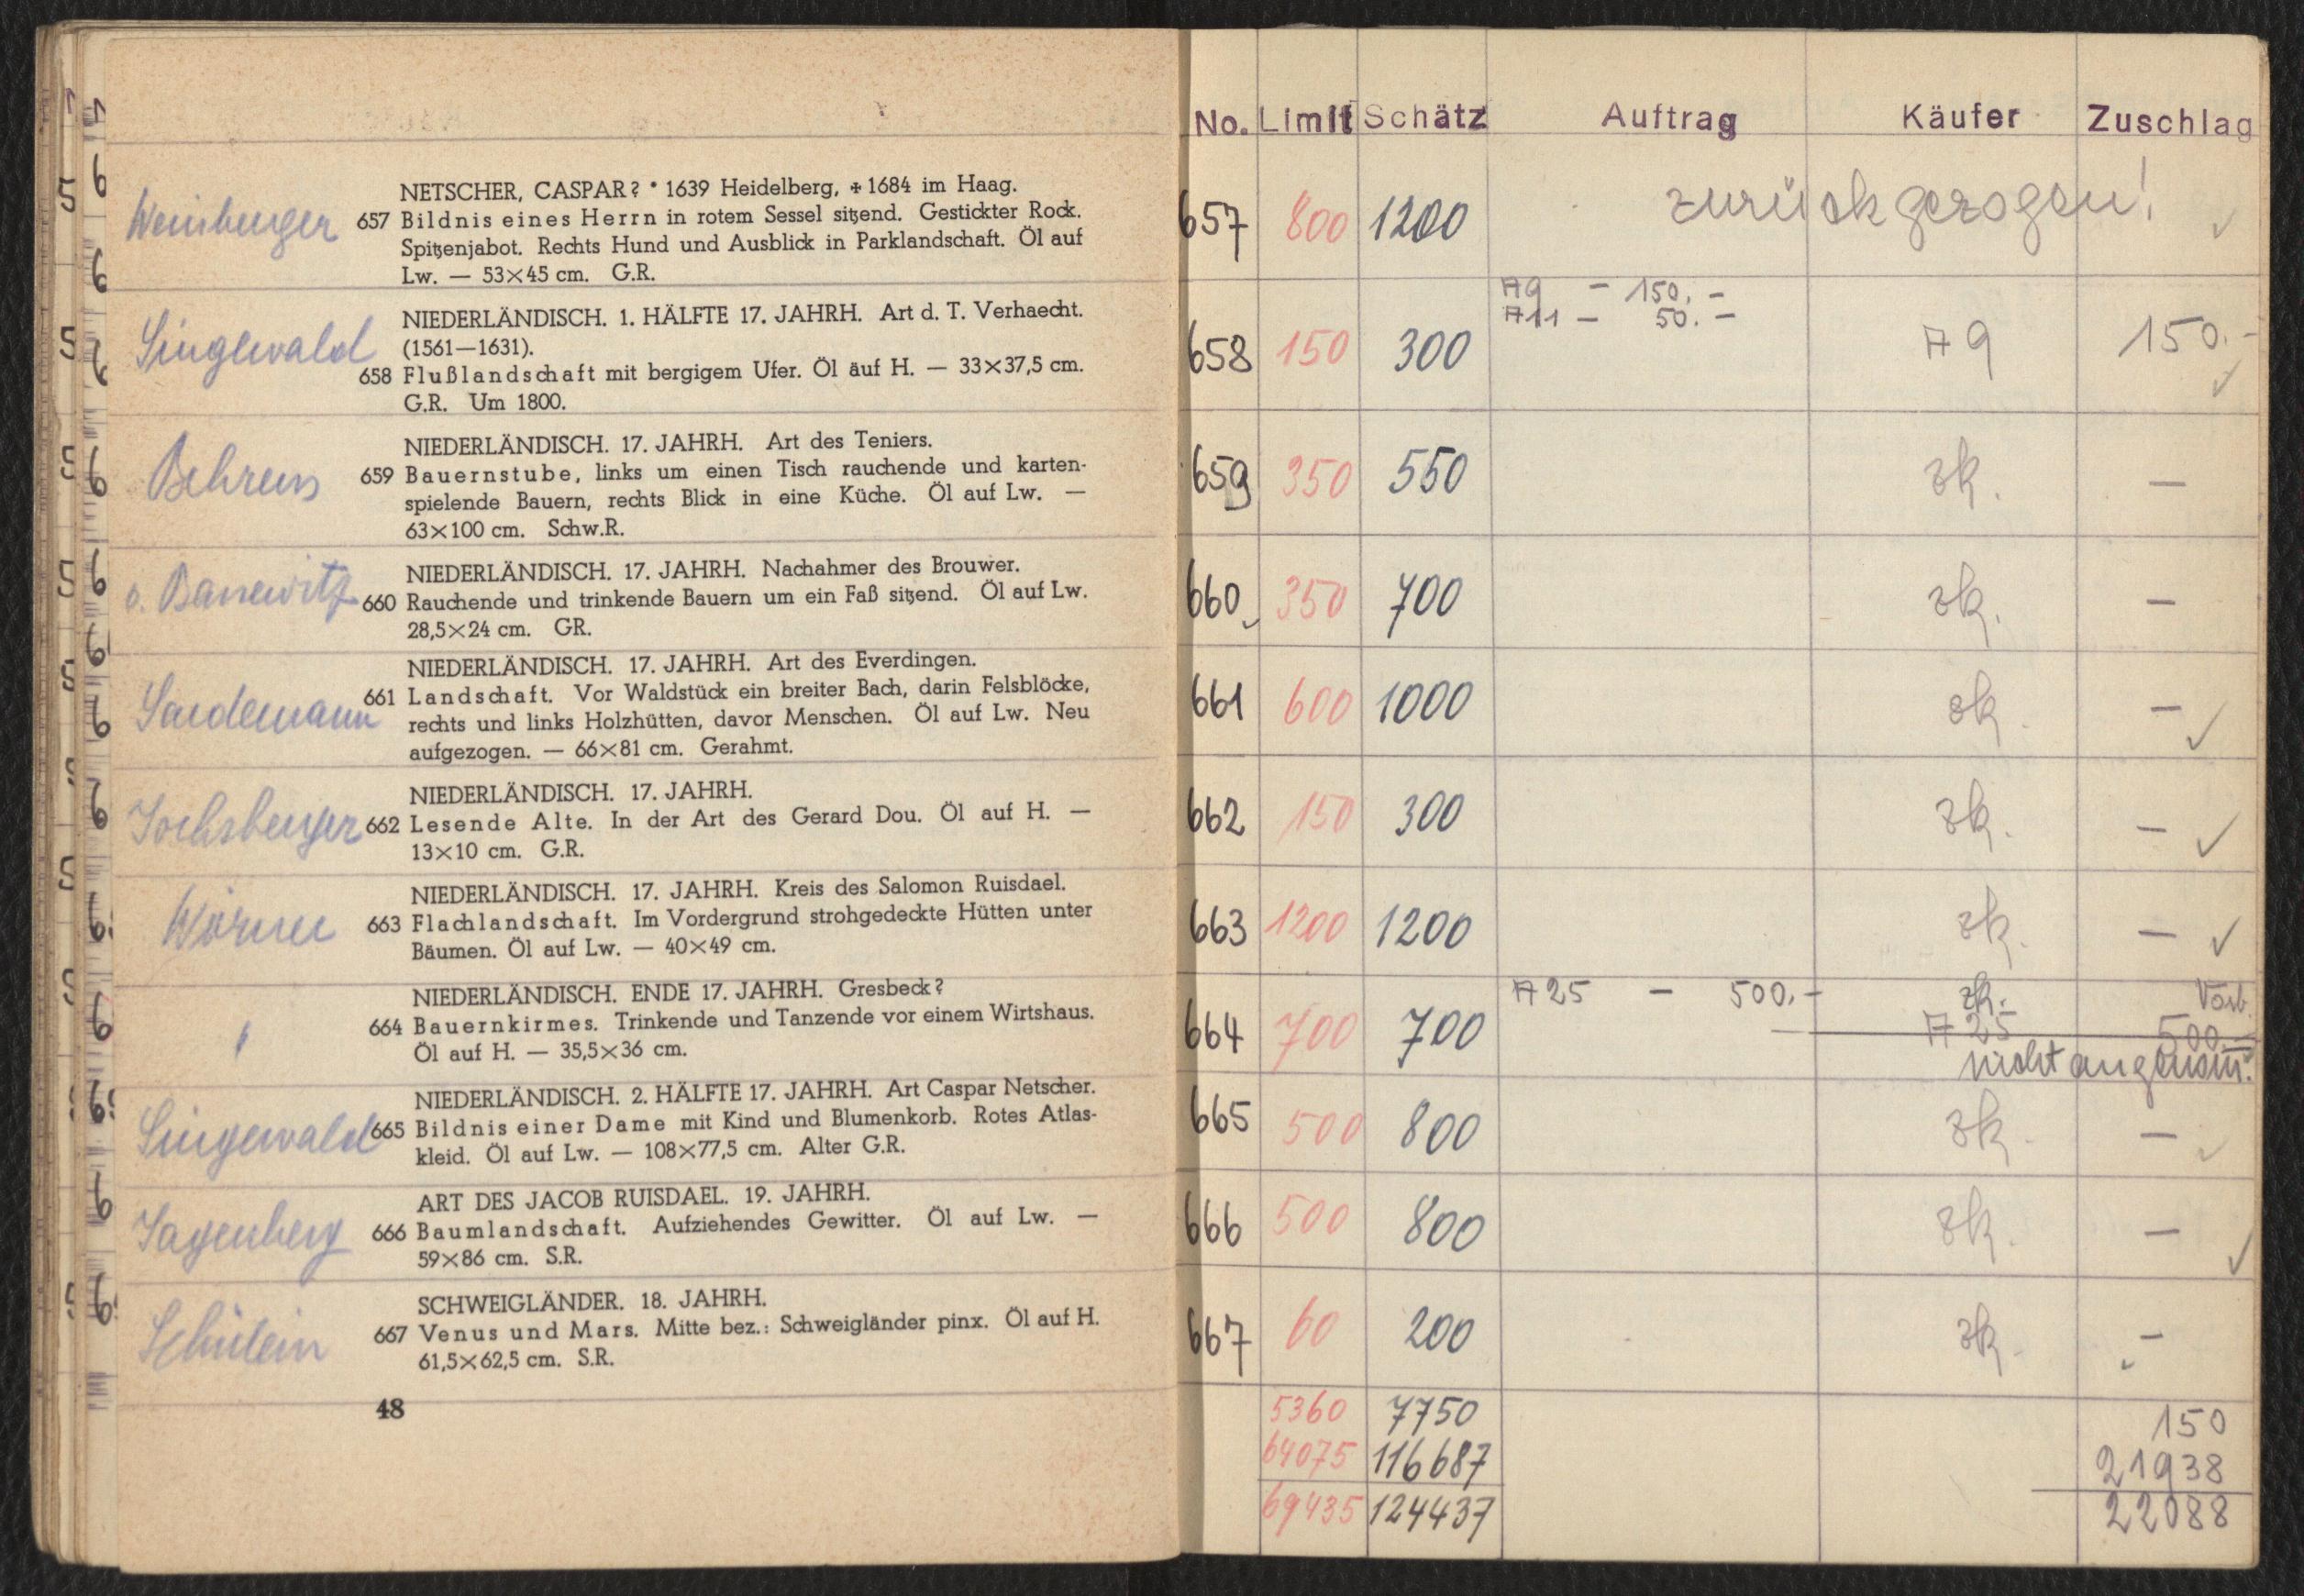 NETSCHER, CASPAR? * 1639 Heidelberg, ✠ 1684 im Haag.
Weinberger 657 Bildnis eines Herrn in rotem Sessel sitzend. Gestickter Rock.
Spitzenjabot. Rechts Hund und Ausblick in Parklandschaft. Öl auf
Lw. — 53×45 cm. G.R.
NIEDERLÄNDISCH. 1. HÄLFTE 17. JAHRH. Art d. T. Verhaecht.
Singewald (1561—1631).
658 Flußlandschaft mit bergigem Ufer. Öl äuf H. — 33×37,5 cm.
G.R. Um 1800.
NIEDERLÄNDISCH. 17. JAHRH. Art des Teniers.
Behrens 659 Bauernstube, links um einen Tisch rauchende und karten-
spielende Bauern, rechts Blick in eine Küche. Öl auf Lw. —
63×100 cm. Schw.R.
NIEDERLÄNDISCH. 17. JAHRH. Nachahmer des Brouwer.
660 Rauchende und trinkende Bauern um ein Faß sitzend. Öl auf Lw.
28,5×24 cm. GR.
NIEDERLÄNDISCH. 17. JAHRH. Art des Everdingen.
661 Landschaft. Vor Waldstück ein breiter Bach, darin Felsblöcke,
rechts und links Holzhütten, davor Menschen. Öl auf Lw. Neu
aufgezogen. — 66×81 cm. Gerahmt.
NIEDERLÄNDISCH. 17. JAHRH.
Jochsberger 662 Lesende Alte. In der Art des Gerard Dou. Öl auf H. —
13×10 cm. G.R.
NIEDERLÄNDISCH. 17. JAHRH. Kreis des Salomon Ruisdael.
663 Flachlandschaft. Im Vordergrund strohgedeckte Hütten unter
Bäumen. Öl auf Lw. — 40×49 cm.
NIEDERLÄNDISCH. ENDE 17. JAHRH. Gresbeck?
664 Bauernkirmes. Trinkende und Tanzende vor einem Wirtshaus.
Öl auf H. — 35,5×36 cm.
NIEDERLÄNDISCH. 2. HÄLFTE 17. JAHRH. Art Caspar Netscher.
Singewald 665 Bildnis einer Dame mit Kind und Blumenkorb. Rotes Atlas-
kleid. Öl auf Lw. — 108×77,5 cm. Alter G.R.
ART DES JACOB RUISDAEL. 19. JAHRH.
Jagenberg 666 Baumlandschaft. Aufziehendes Gewitter. Öl auf Lw. —
59×86 cm. S.R.
SCHWEIGLÄNDER. 18. JAHRH.
Schülein 667 Venus und Mars. Mitte bez.: Schweigländer pinx. Öl auf H.
61,5×62,5 cm. S.R.
48
No. Limit Schätz Auftrag Käufer Zuschlag
657 800 1200 zurückgezogen!
A9 — 150.—
A11 — 50.—
658 150 300 A9 150.—
659 350 550 zk. —
660 350 700 zk. —
661 600 1000 zk. —
662 150 300 zk. —
663 1200 1200 zk. —
A25 — 500.— zk. Vorb.
664 700 700 A25 500.—
nicht angenom.
665 500 800 zk. —
666 500 800 zk. —
667 60 200 zk. —
5360 7750 150
64075 116687 21938
69435 124437 22088